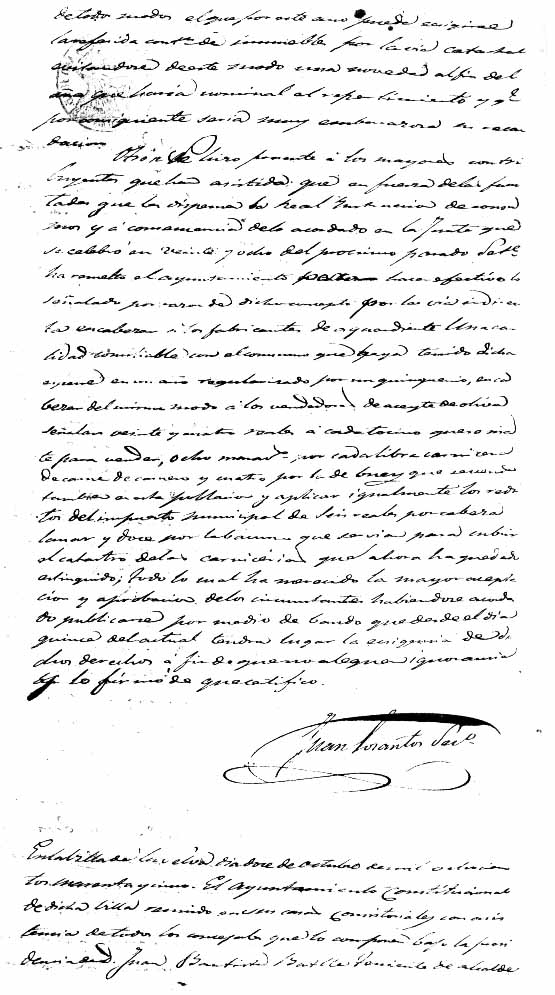 de todos modos el que por este año puede exigirse
la referida contn. de inmueble por la via catastral
evitandose de este modo una novedad al fin del
año que haria nominal el repartimiento y pr.
por consiguiente seria muy embarazosa su recau
dacion
se hizo presente á los mayores contri
buyentes que han asistido que en fuerza de las facul
tades que les dispensa la Real Instruccion de consu
mos y á consecuencia de lo acordado en la Junta que
se celebró en veinte y ocho del procsimo pasado Sete.
ha resuelto el ayuntamiento hacer efectivo lo
señalado por razon de dicho concepto por la via indirec
ta encabezar á los fabricantes de aguardiente Una ca
lidad conciliable con el consumo que haya tenido dicha
especie en un año regularizado por un quinquenio, enca
bezar del mismo modo á los vendedores de aceyte de oliva
señalar veinte y cuatro reales á cada tocino que se ma
te para vender, ocho marave. por cada libra carnicera
de carne de carnero y cuatro por la de buey que se venda
tambien en esta poblacion y aplicar igualmente los redi
tos del impuesto municipal de seis reales por cabeza
lanar y doce por la bacuna que servia para cubrir
el catastro de las carnicerias que ahora ha quedado
estinguido; todo lo cual ha merecido la mayor acepta
cion y aprobacion de los circunstantes habiendose acorda
do publicarse por medio de bando que desde el dia
quince del actual tendra lugar la exigencia de di
chos derechos á fin de que no alegue ignorancia
lo firmó de que certifico.
Juan Losantos Seco.
En la villa de la Selva dia doce de octubre de mil ochocien
tos cuarenta y cinco. El Ayuntamiento Constitucional
de dicha villa reunido en sus casas Consistoriales con asis
tencia de todos los concejales que lo componen bajo la presi
dencia de D. Juan Bautista Batlle teniente de alcalde